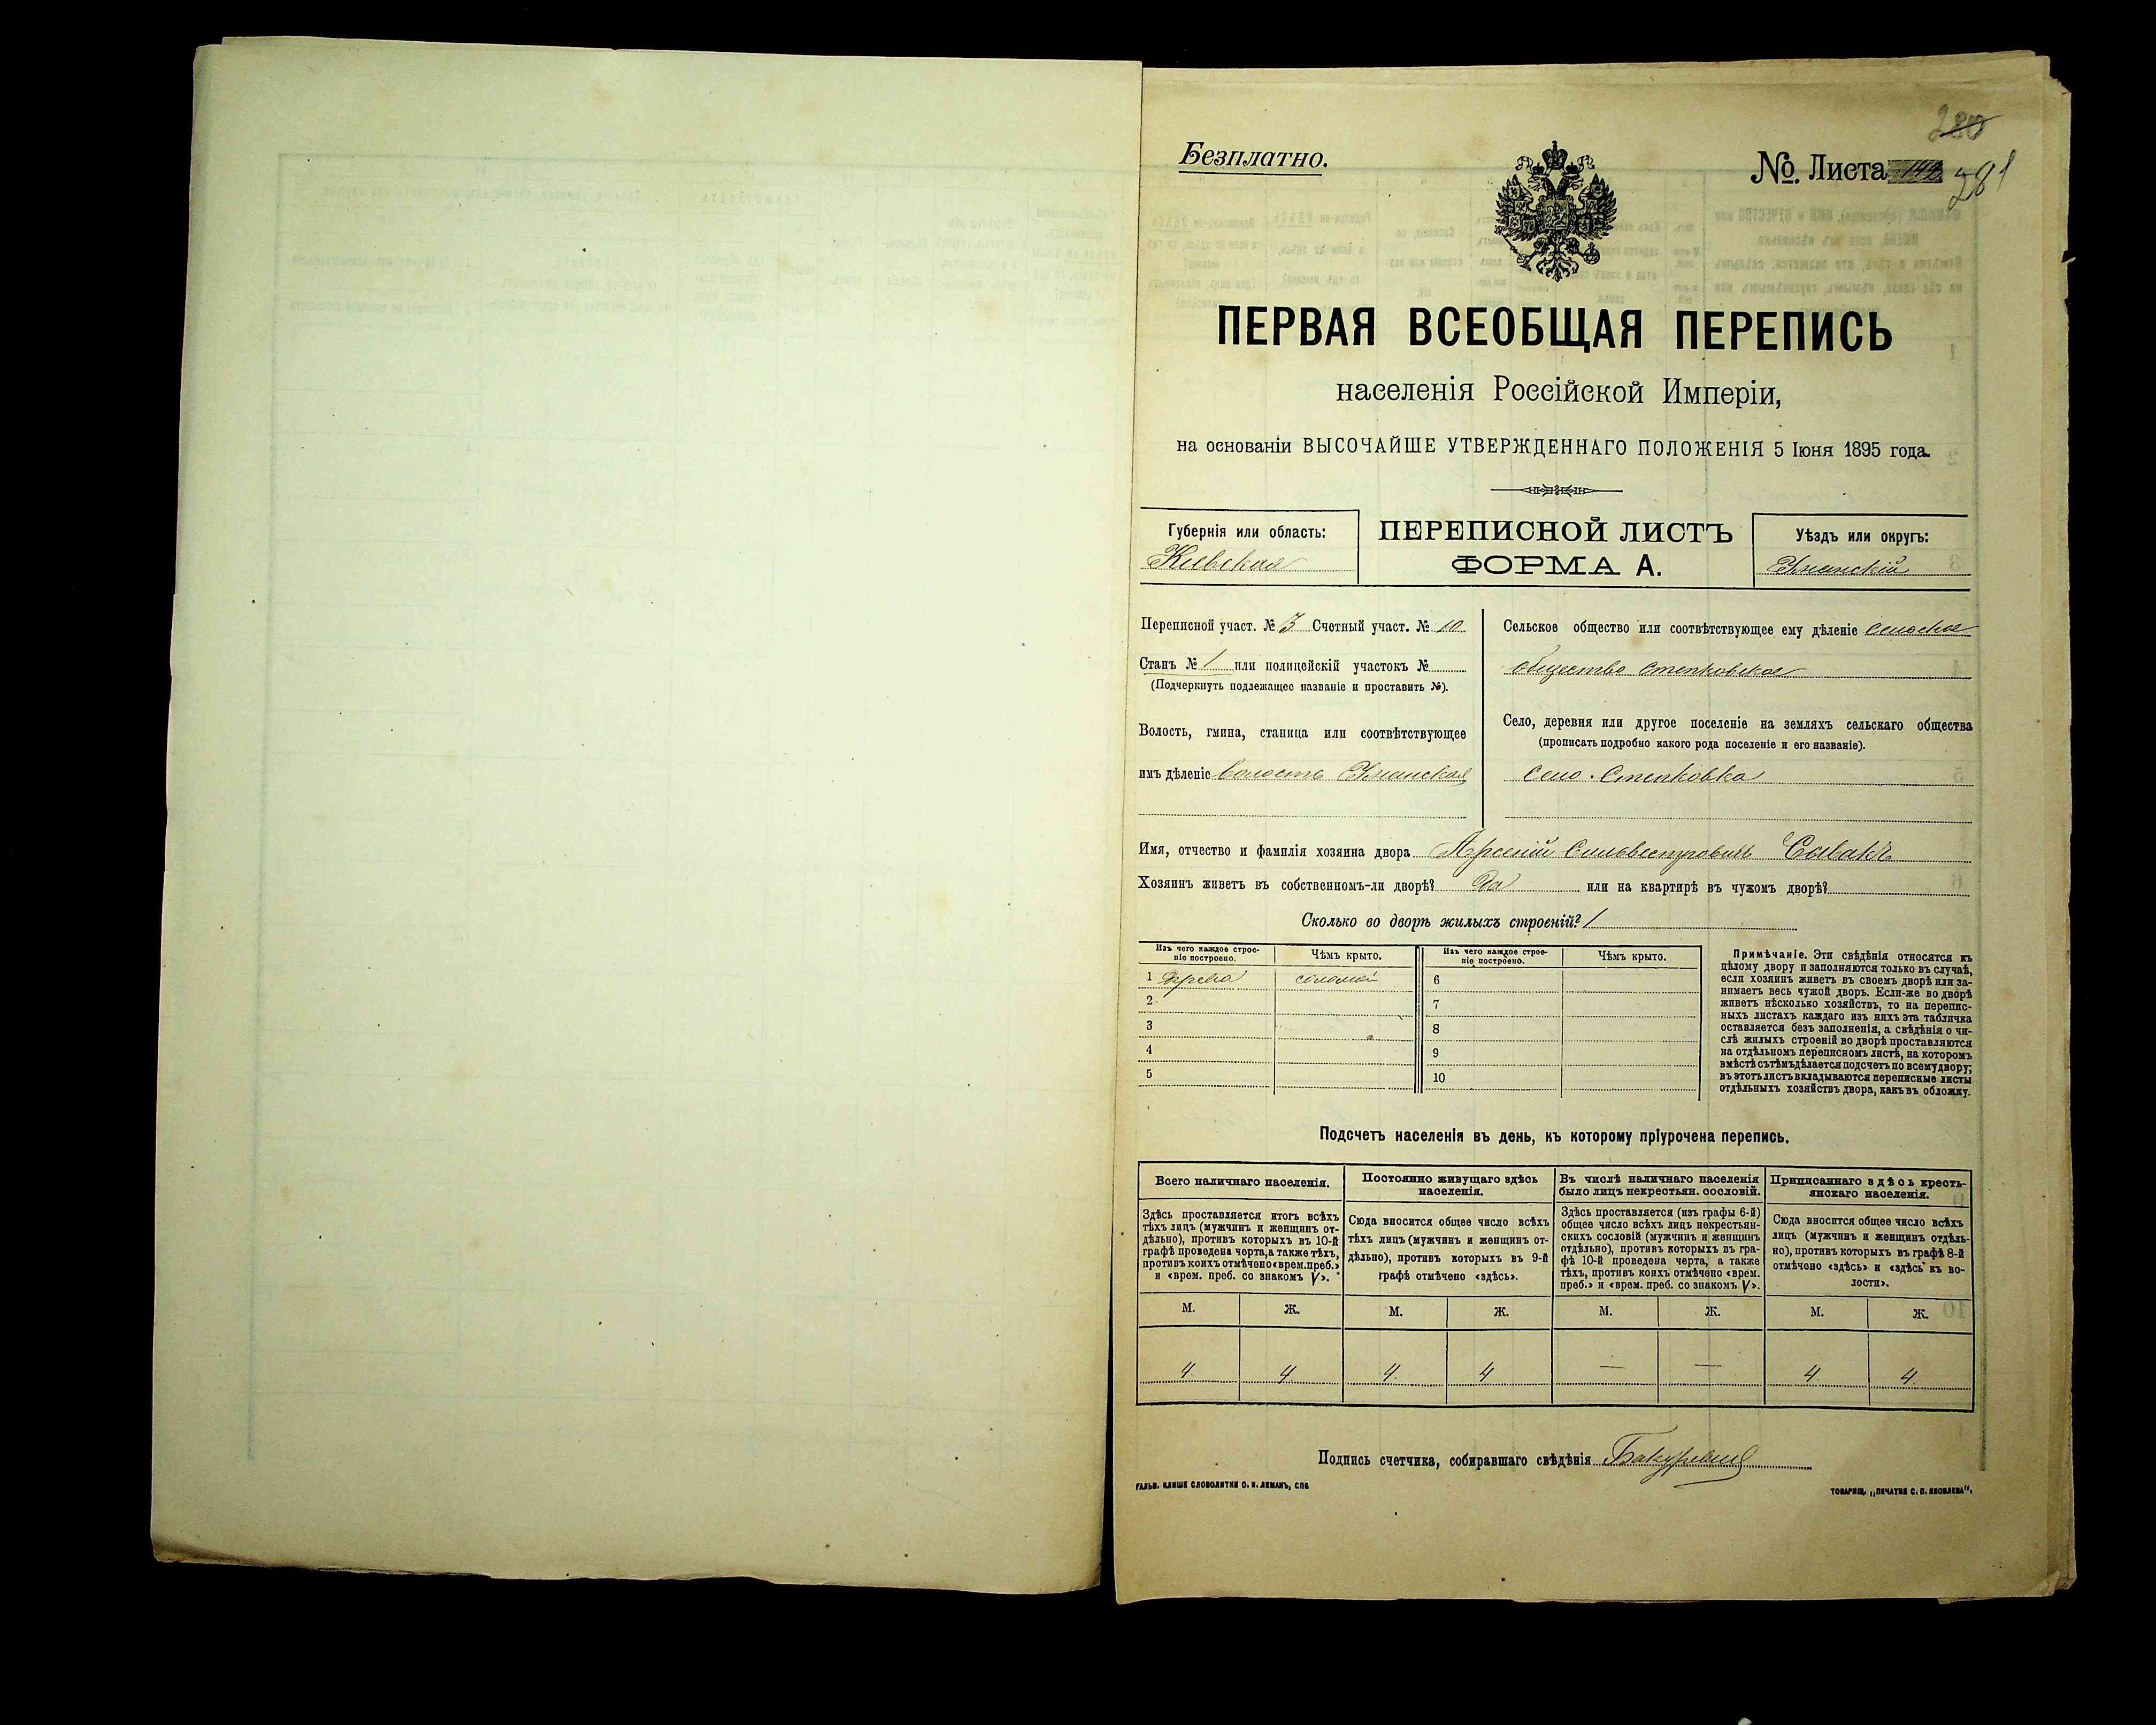 280
Безплатно.
№ Листа 142 281
ПЕРВАЯ ВСЕОБЩАЯ ПЕРЕПИСЬ
населенія Россійской Имперіи,
на основаніи ВЫСОЧАЙШЕ УТВЕРЖДЕННАГО ПОЛОЖЕНІЯ 5 Іюня 1895 года.
Губернія или область:
Кіевская
ПЕРЕПИСНОЙ ЛИСТЪ
ФОРМА А.
Уѣздъ или округъ:
Уманскій
Переписной участ. № 3 Счетный участ. № 10
Станъ № 1 или полицейскій участокъ №
(Подчеркнуть подлежащее названіе и проставить №).
Волость, гмина, станица или соотвѣтствующее
имъ дѣленіе волость Уманская
Сельское общество или соотвѣтствующее ему дѣленіе сельское
общество Степковское
Село, деревня или другое поселеніе на земляхъ сельскаго общества
(прописать подробно какого рода поселеніе и его названіе).
село Степковка
Имя, отчество и фамилія хозяина двора Арсеній Сильвестровичъ Сывакъ
Хозяинъ живетъ въ собственномъ-ли дворѣ? Да или на квартирѣ въ чужомъ дворѣ?
Сколько во дворѣ жилыхъ строеній? 1
Изъ чего каждое строе-
ніе построено.
Чѣмъ крыто.
Изъ чего каждое строе-
ніе построено.
Чѣмъ крыто.
1 Дерева соломой 6
2 7
3 8
4 9
5 10
Примѣчаніе. Эти свѣдѣнія относятся къ
цѣлому двору и заполняются только въ случаѣ,
если хозяинъ живетъ въ своемъ дворѣ или за-
нимаетъ весь чужой дворъ. Если-же во дворѣ
живетъ нѣсколько хозяйствъ, то на перепис-
ныхъ листахъ каждаго изъ нихъ эта табличка
оставляется безъ заполненія, а свѣдѣнія о чи-
слѣ жилыхъ строеній во дворѣ проставляются
на отдѣльномъ переписномъ листѣ, на которомъ
вмѣстѣ съ тѣмъ дѣлается подсчетъ по всему двору;
въ этотъ листъ вкладываются переписные листы
отдѣльныхъ хозяйствъ двора, какъ въ обложку.
Подсчетъ населенія въ день, къ которому пріурочена перепись.
Всего наличнаго населенія.
Здѣсь проставляется итогъ всѣхъ
тѣхъ лицъ (мужчинъ и женщинъ от-
дѣльно), противъ которыхъ въ 10-й
графѣ проведена черта, а также тѣхъ,
противъ коихъ отмѣчено «врем. преб.»
и «врем. преб. со знакомъ V».
Постоянно живущаго здѣсь
населенія.
Сюда вносится общее число всѣхъ
тѣхъ лицъ (мужчинъ и женщинъ от-
дѣльно), противъ которыхъ въ 9-й
графѣ отмѣчено «здѣсь».
Въ числѣ наличнаго населенія
было лицъ некрестьян. сословій.
Здѣсь проставляется (изъ графы 6-й)
общее число всѣхъ лицъ некрестьян-
скихъ сословій (мужчинъ и женщинъ
отдѣльно), противъ которыхъ въ гра-
фѣ 10-й проведена черта, а также
тѣхъ, противъ коихъ отмѣчено «врем.
преб.» и «врем. преб. со знакомъ V».
Приписаннаго здѣсь кресть-
янскаго населенія.
Сюда вносится общее число всѣхъ
лицъ (мужчинъ и женщинъ отдѣль-
но), противъ которыхъ въ графѣ 8-й
отмѣчено «здѣсь» и «здѣсь къ во-
лости».
М. Ж. М. Ж. М. Ж. М. Ж.
4 4 4 4 — — 4 4
Подпись счетчика, собиравшаго свѣдѣнія
ГАЛЬВ. КЛИШЕ СЛОВОЛИТНИ О. И. ЛЕМАНЪ, СПБ
ТОВАРИЩ. „ПЕЧАТНЯ С. П. ЯКОВЛЕВА".